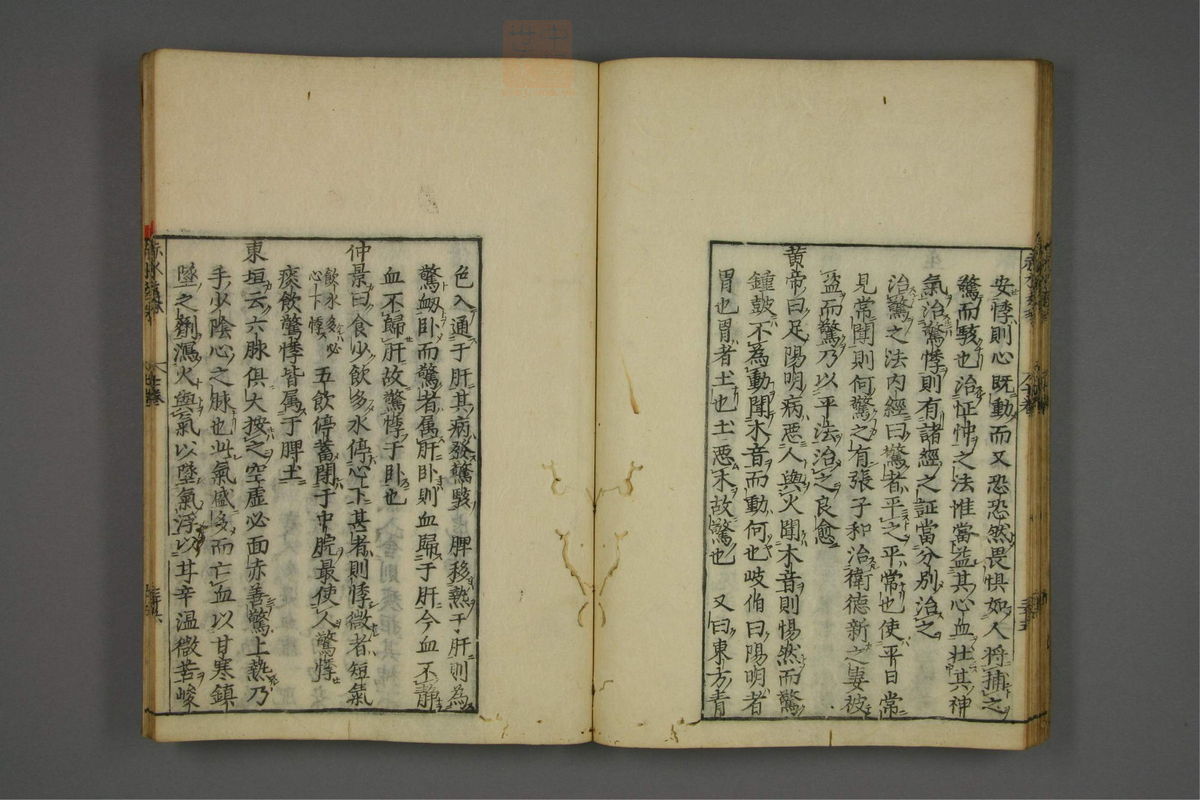 安悸則心既動而又恐恐然畏懼如人將捕之
驚而駭也治怔忡之法惟當益其心血壯其神
氣治驚悸則有諸經之証當分別治之
治驚之法内經曰驚者平之平常也使平日常
見常聞則何驚之有張子和治衛德新之妻被
盗而驚乃以平法治之良愈
黄帝曰足陽明病惡人與火聞木音則惕然而驚
鍾鼓不為動聞木音而動何也岐伯曰陽明者
胃也胃者土也土惡木故驚也 又曰東方青
色入通于肝其病發驚駭 脾移熱于肝則為
驚衂卧而驚者属肝卧則血歸于肝今血不静
血不歸肝故驚悸于卧也
仲景曰食少飲多水停心下甚者則悸微者短氣
飲水多必
心下悸 五飲停蓄閉于中脘最使人驚悸
痰飲驚悸皆属于脾土
東垣云六脉俱大按之空虚必面赤善驚上熱乃
手少陰心之脉也此氣盛多而亡血以甘寒鎮
墜之劑瀉火與氣以墜氣浮以甘辛温微苦峻